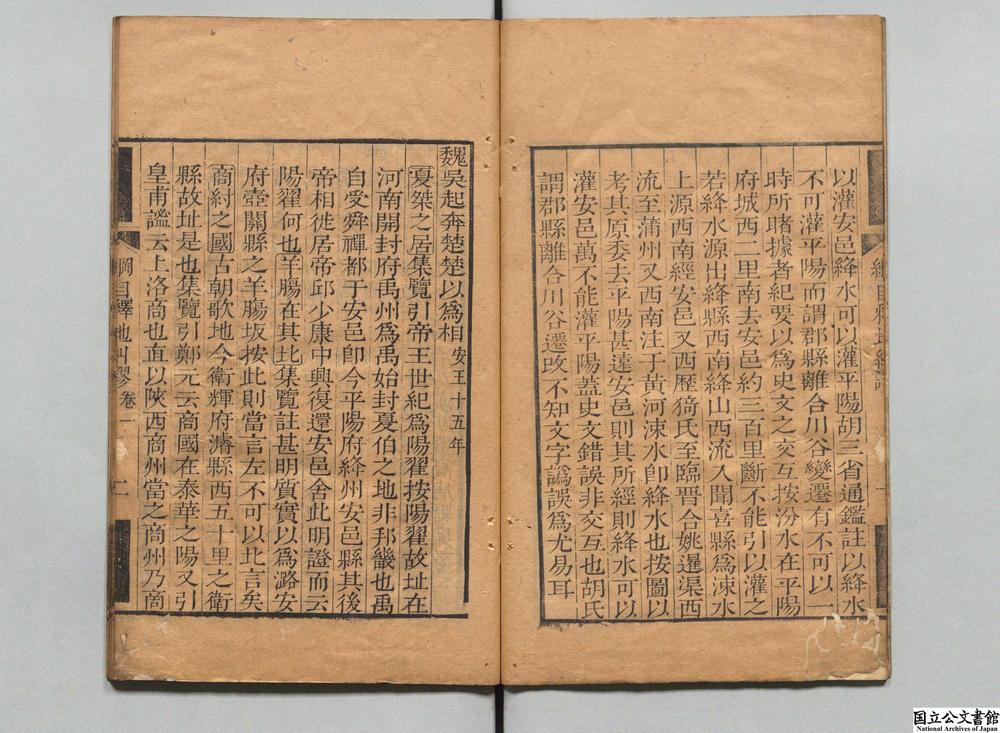 以灌安邑絳水可以灌平陽胡三省通鑑註以絳水
不可灌平陽而謂郡縣離合川谷變遷有不可以一
時所睹據者紀要以為史文之交互按汾水在平陽
府城西二里南去安邑約三百里斷不能引以灌之
若絳水源出絳縣西南絳山西流入聞喜縣為涑水
上源西南經安邑又西歷猗氏至臨晋合姚暹渠西
流至蒲州又西南注于黃河涑水卽絳水也按圖以
考其原委去平陽甚遠安邑則其所經則絳水可以
灌安邑萬不能灌平陽蓋史文錯誤非交互也胡氏
謂郡縣離合川谷遷攺不知文字譌誤為尤易耳
魏吳起奔楚楚以為相 安王十五年
夏桀之居集覽引帝王世紀為陽翟按陽翟故址在
河南開封府禹州為禹始封夏伯之地非邦畿也禹
自受舜禪都于安邑卽今平陽府絳州安邑縣其後
帝相徙居帝邱少康中興復還安邑舍此明證而云
陽翟何也羊腸在其北集覽註甚明質實以為潞安
府壺關縣之羊腸坂按此則當言左不可以北言矣
商紂之國古朝歌地今衛輝府濬縣西五十里之衛
縣故址是也集覽引鄭元云商國在泰華之陽又引
皇甫謐云上洛商也直以陝西商州當之商州乃商
綱目釋地糾謬 卷一 二
国立公文書館
National Archives of Japan